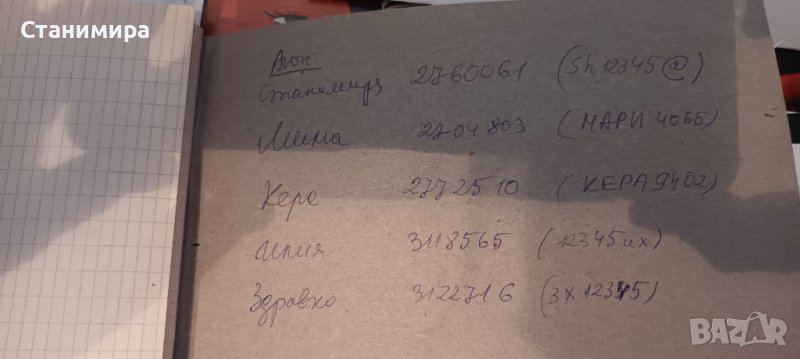 Станимира
Станимира 2760061 (Sh12345@)
2704803 (МАРИ 4065)
Кера 2772510 (КЕРА9402)
Илия 3118565 (12345их)
Здравко 3122716 (3х12345)
BAZAR